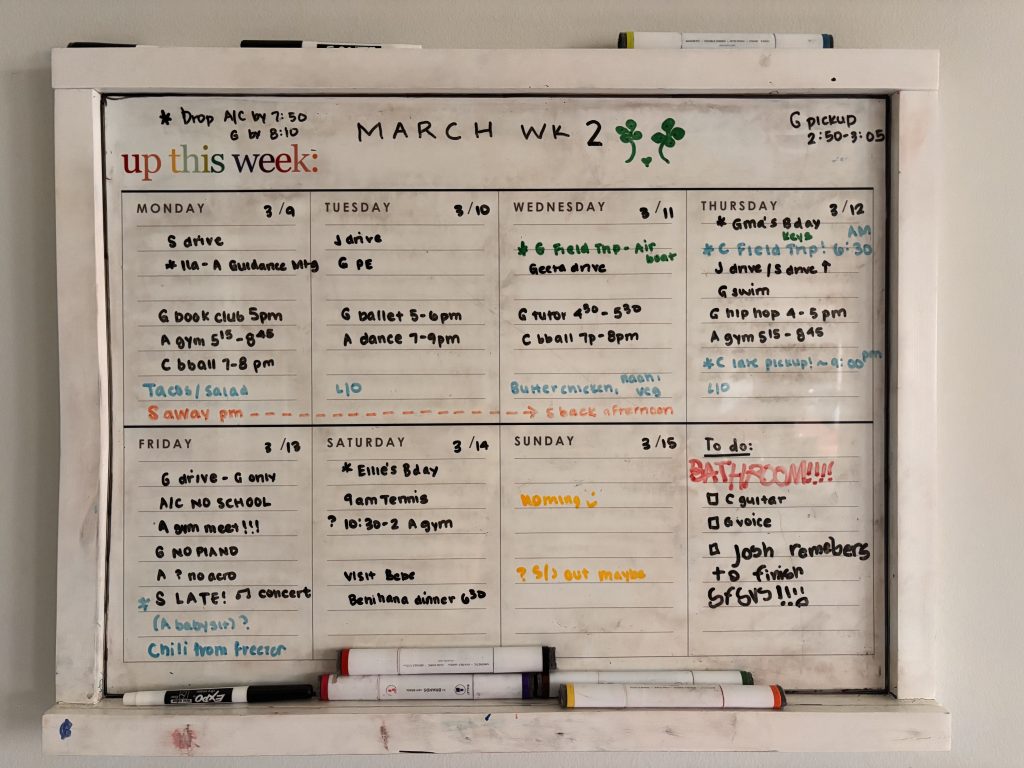 * Drop A/C by 7:50
G by 8:10
MARCH WK 2
G pickup
2:50-3:05
up this week:
MONDAY 3/9
S drive
*11a - A Guidance Mtg
G book club 5pm
A gym 5¹⁵ - 8⁴⁵
C bball 7-8 pm
Tacos/salad
S away pm - - - - → S back afternoon
TUESDAY 3/10
J drive
G PE
G ballet 5-6pm
A dance 7-9pm
L/O
WEDNESDAY 3/11
* G Field Trip - Air
boat
Geeta drive
G tutor 4³⁰ - 5³⁰
C bball 7p-8pm
Butter chicken, naan,
veg
THURSDAY 3/12
* Gma's Bday
Keys AM
*C Field Trip! 6:30
J drive/S drive ↑
G swim
G hip hop 4-5pm
A gym 5¹⁵ - 8⁴⁵
*C late pickup! ~9:00pm
L/O
FRIDAY 3/13
G drive - G only
A/C NO SCHOOL
A gym meet!!!
G NO PIANO
A ? no acro
* S LATE! ♫ concert
(A babysit)?
Chili from freezer
SATURDAY 3/14
* Ellie's Bday
9am Tennis
? 10:30-2 A gym
Visit Bebe
Benihana dinner 6³⁰
SUNDAY 3/15
Noming
? S/J out maybe
To do:
BATHROOM!!!!
□ C guitar
□ G voice
□ Josh remebers
to finish
SFGVS!!!!
EXPO